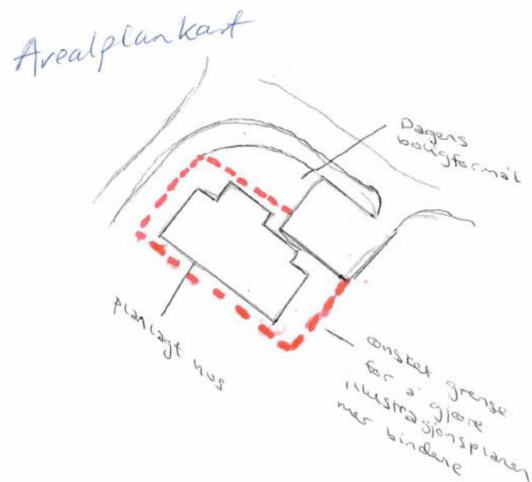 Arealplankart
Dagens
boligformål
planlagt hus
ønsket grense
for å gjøre
illustrasjonsplanen
mer bindene